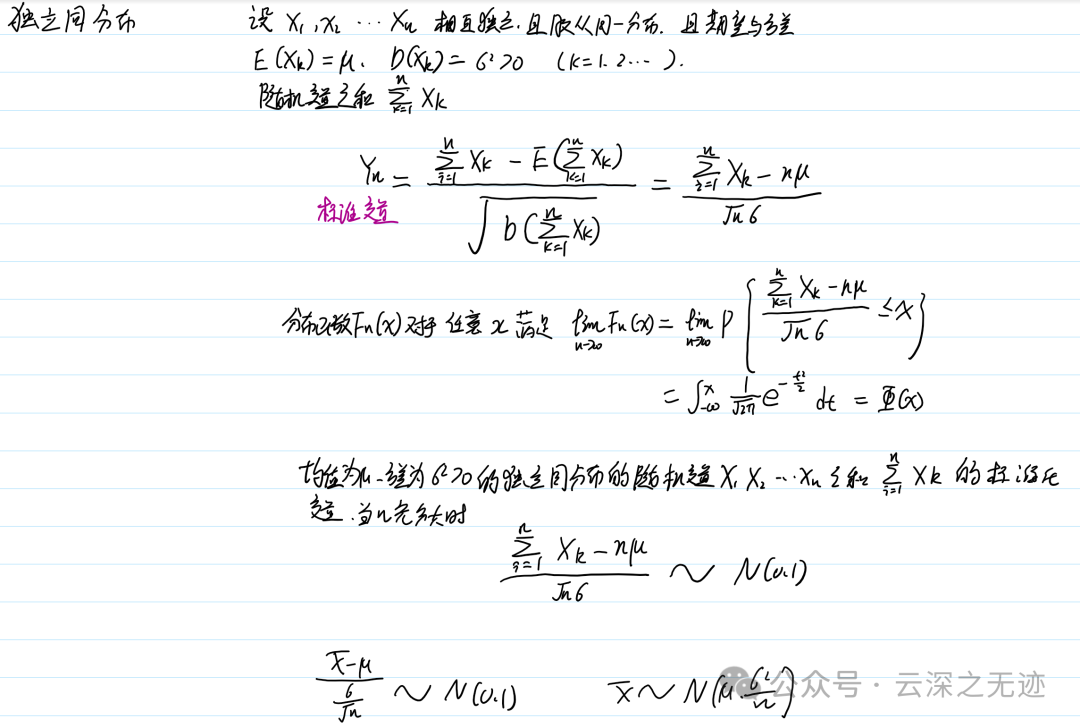 独立同分布 设 X₁, X₂ ⋯ Xₙ 相互独立. 且服从同一分布. 且期望与方差
E(Xₖ) = μ. D(Xₖ) = σ² > 0 (k=1. 2⋯).
随机变量之和 ∑ₖ₌₁ⁿ Xₖ
Yₙ = (∑ᵢ₌₁ⁿ Xₖ − E(∑ₖ₌₁ⁿ Xₖ)) / √(D(∑ₖ₌₁ⁿ Xₖ)) = (∑ᵢ₌₁ⁿ Xₖ − nμ) / (√n σ)
标准变量
分布函数Fₙ(x)对于任意x 满足 lim n→∞ Fₙ(x) = lim n→∞ P { (∑ₖ₌₁ⁿ Xₖ − nμ) / (√n σ) ≤ x }
= ∫₋∞ˣ (1/√2π) e^(−t²/2) dt = Φ(x)
均值为μ. 方差为σ²>0的独立同分布的随机变量X₁ X₂ ⋯ Xₙ之和 ∑ᵢ₌₁ⁿ Xk 的标准化
变量. 当n充分大时
(∑ᵢ₌₁ⁿ Xₖ − nμ) / (√n σ) ~ N(0.1)
(X̄−μ) / (σ/√n) ~ N(0.1) X̄ ~ N(μ. σ²/n)
公众号 · 云深之无迹